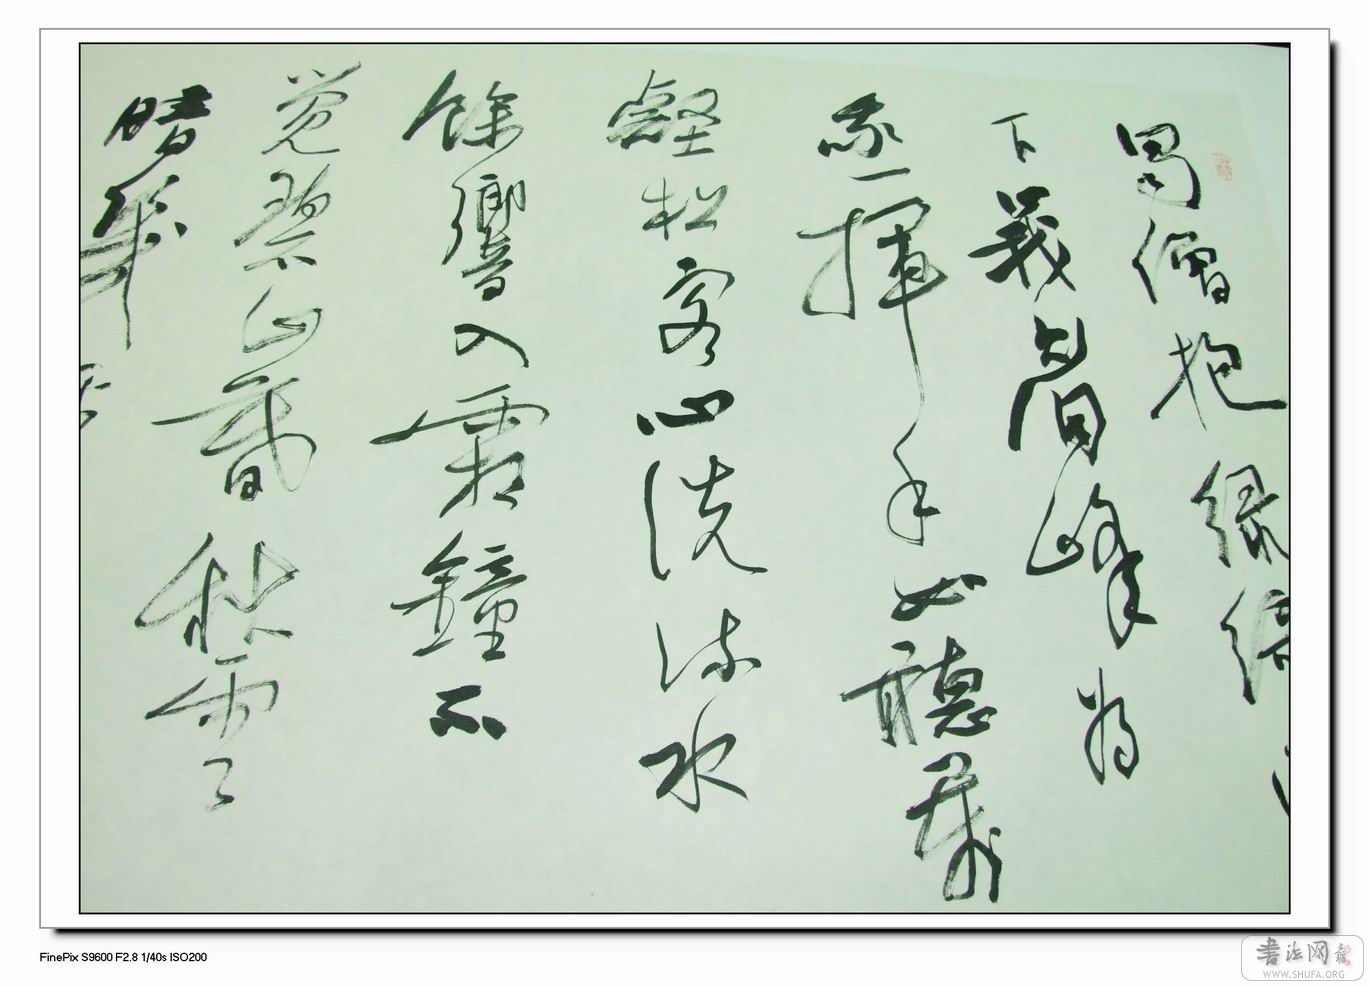 蜀僧抱綠綺
下峩眉峰為
我一揮手如聽萬
壑松客心洗流水
餘響入霜鐘不
覺碧山暮秋雲
暗幾
FinePix S9600 F2.8 1/40s ISO200
书法网
WWW.SHUFA.ORG